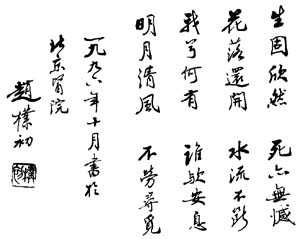 生固欣然 死亦無憾
花落還開 水流不斷
我兮何有 誰歟安息
明月清風 不勞尋覓
一九九六年十月書於
北京醫院
趙樸初